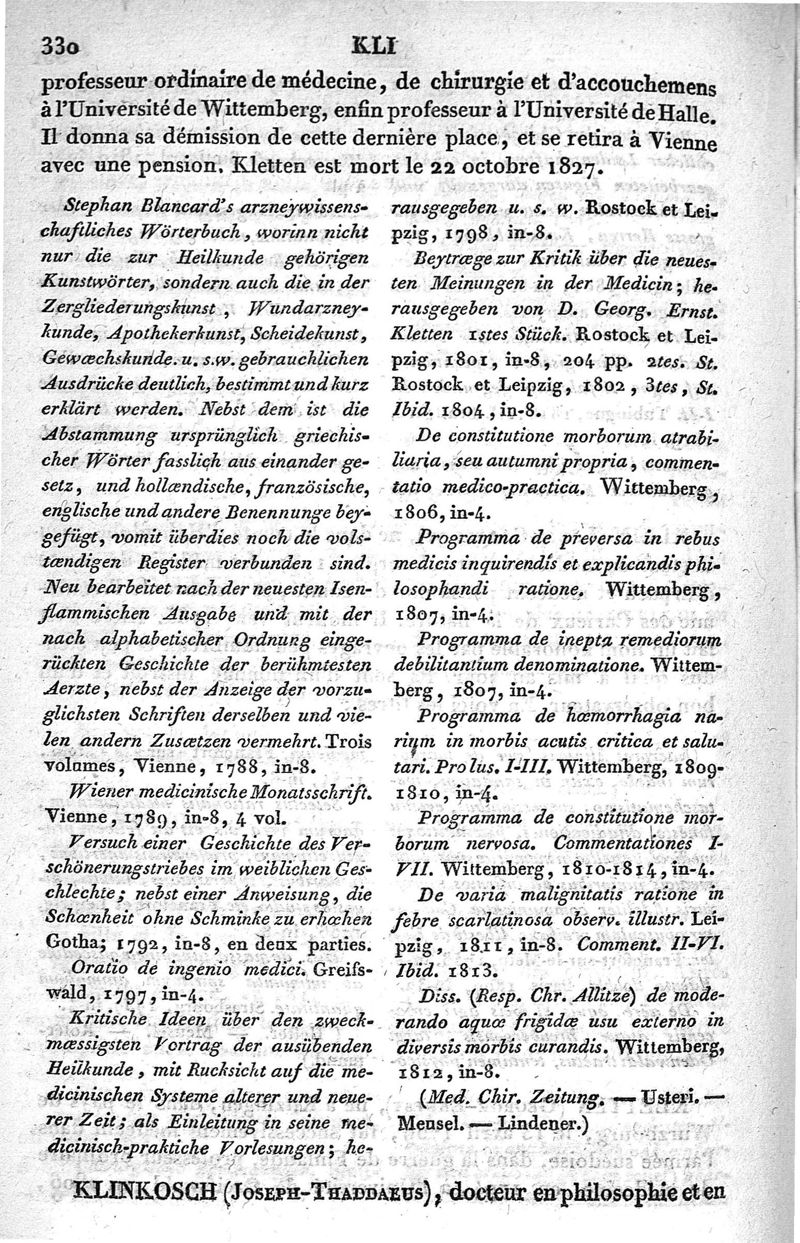 330 KLI
professeur ordinaire de médecine, de chirurgie et d'accouchemens
à l'Université de Wittemberg, enfin professeur à l'Université de Halle.
Il donna sa démission de cette dernière place, et se retira à Vienne
avec une pension. Kletten est mort le 22 octobre 1827.
Stephan Blancard's arzneywissens-
chaftliches Wörterbuch, worinn nicht
nur die zur Heilkunde gehörigen
Kunstwörter, sondern auch die in der
Zergliederungskunst, Wundarzney-
kunde, Apothekerkunst, Scheidekunst,
Gewæchskunde. u. s.w. gebrauchlichen
Ausdrücke deutlich, bestimmt und kurz
erklärt werden. Nebst dem ist die
Abstammung ursprünglich griechis-
cher Wörter fasslich aus einander ge-
setz, und hollændische, französische,
englische und andere Benennunge bey-
gefügt, vomit überdies noch die vols-
tændigen Register verbunden sind.
Neu bearbeitet nach der neuesten Isen-
flammischen Ausgabe und mit der
nach alphabetischer Ordnung einge-
rückten Geschichte der berühmtesten
Aerzte, nebst der Anzeige der vorzu-
glichsten Schriften derselben und vie-
len andern Zusætzen vermehrt. Trois
volumes, Vienne, 1788, in-8.
Wiener medicinische Monatsschrift.
Vienne, 1789, in-8, 4 vol.
Versuch einer Geschichte des Ver-
schönerungstriebes im weiblichen Ges-
chlechte; nebst einer Anweisung, die
Schœnheit ohne Schminke zu erhœhen
Gotha; 1792, in-8, en deux parties.
Oratio de ingenio medici. Greifs-
wald, 1797, in-4.
Kritische Ideen über den zweck-
mæssigsten Vortrag der ausübenden
Heilkunde, mit Rucksicht auf die me-
dicinischen Systeme alterer und neue-
rer Zeit; als Einleitung in seine me-
dicinisch-praktiche Vorlesungen; he-
rausgegeben u. s. w. Rostock et Lei-
pzig, 1798, in-8.
Beytræge zur Kritik über die neues-
ten Meinungen in der Medicin; he-
rausgegeben von D. Georg. Ernst.
Kletten 1stes Stück. Rostock et Lei-
pzig, 1801, in-8, 204 pp. 2tes. St.
Rostock et Leipzig, 1802, 3tes, St.
Ibid. 1804, in-8.
De constitutione morborum atrabi-
liaria, seu autumni propria, commen-
tatio medico-practica. Wittemberg,
1806, in-4.
Programma de preversa in rebus
medicis inquirendis et explicandis phi-
losophandi ratione. Wittemberg,
1807, in-4.
Programma de inepta remediorum
debilitantium denominatione. Wittem-
berg, 1807, in-4.
Programma de hœmorrhagia na-
rium in morbis acutis critica et salu-
tari. Prolus. I-III. Wittemberg, 1809-
1810, in-4.
Programma de constitutione mor-
borum nervosa. Commentationes I-
VII. Wittemberg, 1810-1814, in-4.
De varia malignitatis ratione in
febre scarlatinosa observ. illustr. Lei-
pzig, 1811, in-8. Comment. II-VI.
Ibid. 1813.
Diss. (Resp. Chr. Allitze) de mode-
rando aquœ frigidœ usu externo in
diversis morbis curandis. Wittemberg,
1812, in-8.
(Med. Chir. Zeitung. — Usteri. —
Meusel. — Lindener.)
KLINKOSCH (Joseph-Thaddaeus), docteur en philosophie et en